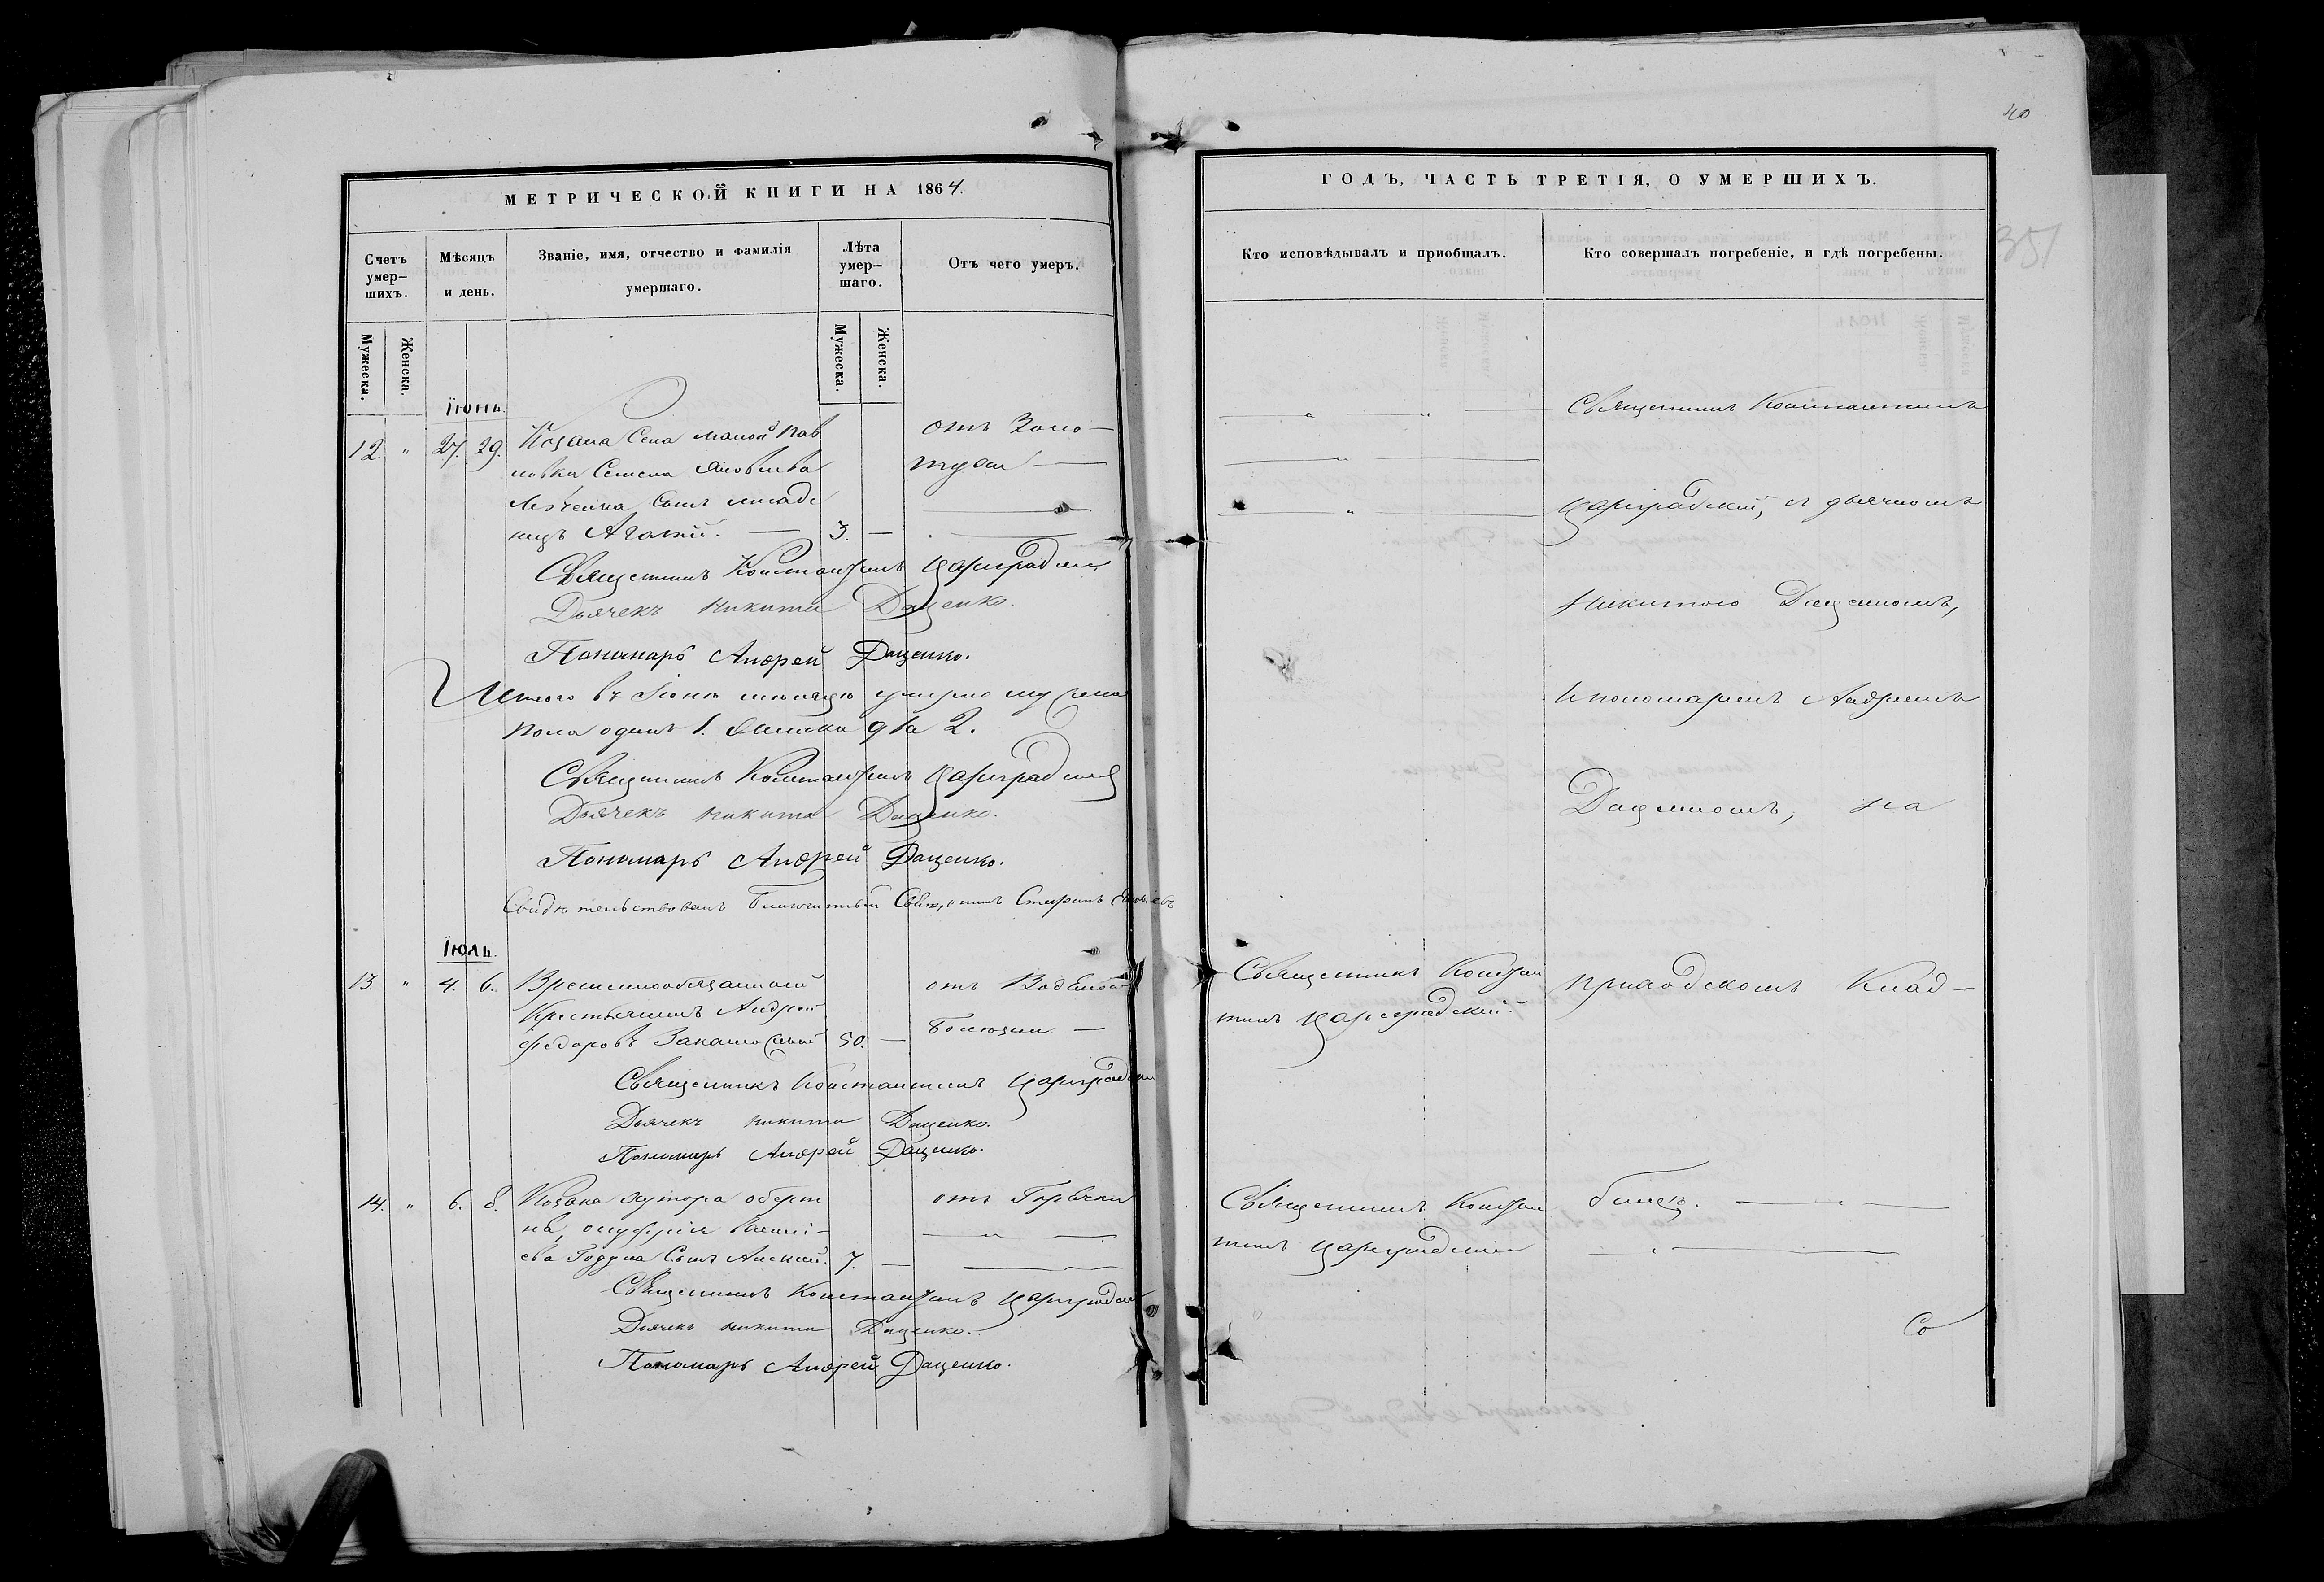 МЕТРИЧЕСКОЙ КНИГИ НА 1864.
Счетъ умер-шихъ.
Мѣсяцъ и день.
Званіе, имя, отчество и фамилія умершаго.
Лѣта умер-шаго.
Отъ чего умеръ.
Мужеска.
Женска.
Мужеска.
Женска.
Іюнь.
12. " 27. 29. Козака Села малой Пав отъ Золо-
ловки Семена Яковлева тухи —
сынъ младе
нцъ 3. —
Священникъ Константинъ Цариградскій
Дьячекъ Никита Даценко.
Пономарь Андрей Даценко.
Итого въ Іюнѣ мѣсяцѣ умерло мужеска
пола одинъ 1. женска два 2.
Священникъ Константинъ Цариградскій
Дьячекъ Никита Даценко.
Пономарь Андрей Даценко.
Свидѣтельствовалъ Благочинный Священникъ
Іюль.
13. " 4. 6. Временнообязанный отъ Водяной
Крестьянинъ Андрей болезни —
Федоровъ 50. —
Священникъ Константинъ Цариградскій
Дьячекъ Никита Даценко.
Пономарь Андрей Даценко.
14. " 6. 8. Козака хутора отъ Горячки
сынъ Алексей. 7. —
Священникъ Константинъ Цариградскій
Дьячекъ Никита Даценко.
Пономарь Андрей Даценко.
40
351
ГОДЪ, ЧАСТЬ ТРЕТІЯ, О УМЕРШИХЪ.
Кто исповѣдывалъ и приобщалъ.
Кто совершалъ погребеніе, и гдѣ погребены.
Священникъ Константинъ
Цариградскій, съ дьячкомъ
Никитою Даценкомъ,
и пономаремъ Андреемъ
Даценкомъ, на
Священникъ Констан приходскомъКлад-
тинъ Цариградскій.
Священникъ Констан бищѣ.
тинъ Цариградскій
Со